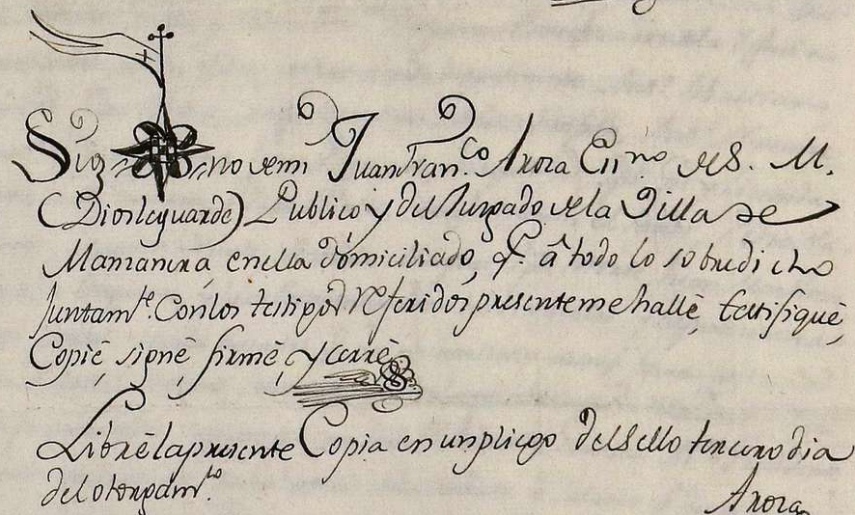 Sig no demi Juan Fran.co Arora Essno de S. M.
(Dios le guarde) Publico y del Juzgado de la Villa de
Manzanera, en ella domiciliado, q.e â todo lo sobredicho
Juntam.te Con los testigos referidos presente me hallè, testifiquè,
Copiè, signè, firmè, y cerrè
Librè la presente Copia en un pliego del Sello tercero dia
del otorgam.to
Arora